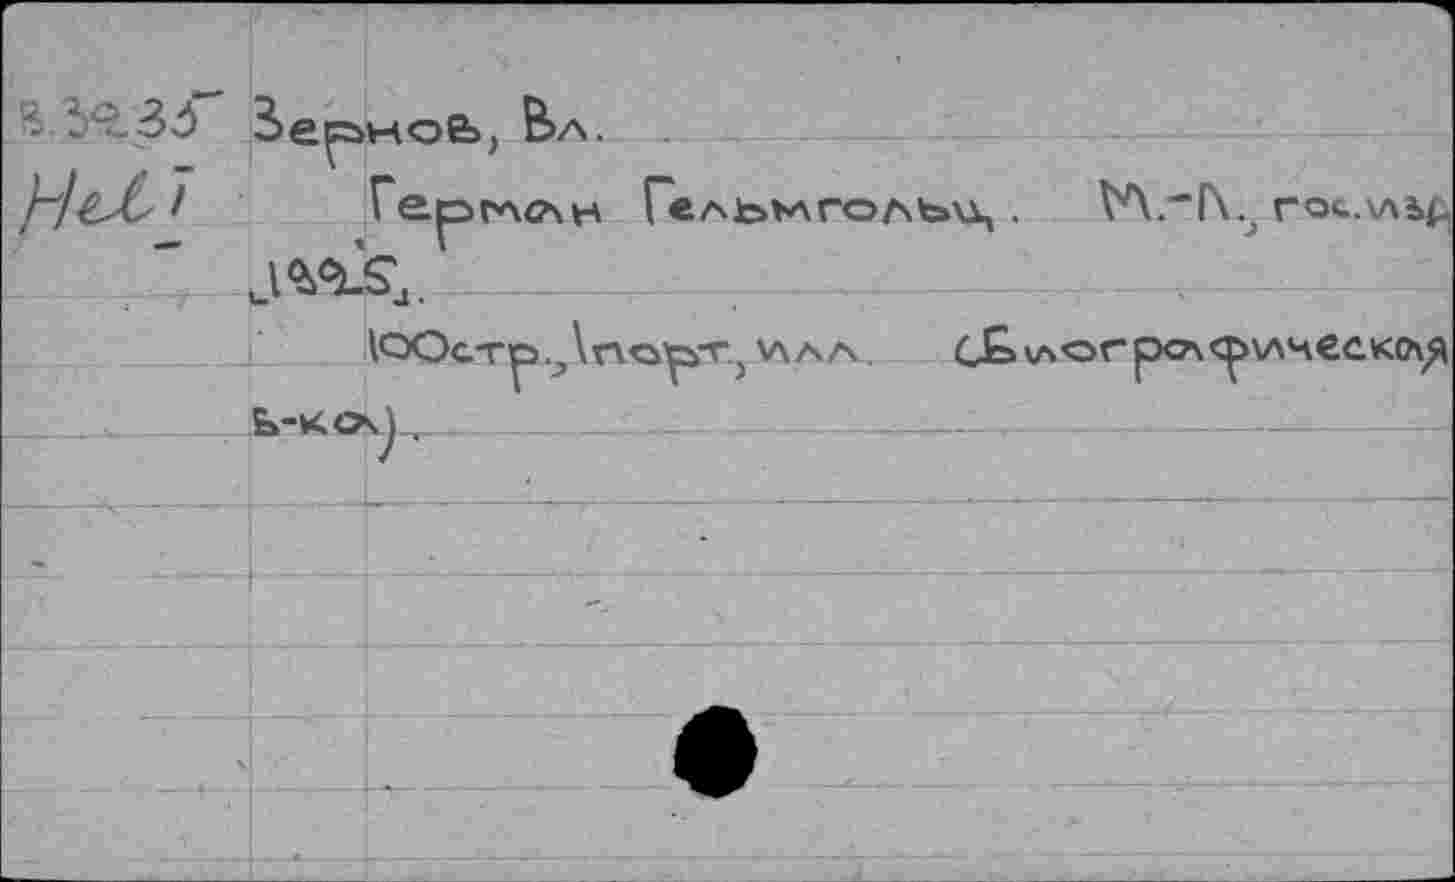 Зернов, Вл.
Hel 1 Герман Гельмгольц. М.-Л., гос. изд.
1925.
100стр., 1порт, илл. (Биографическая
б-ка).